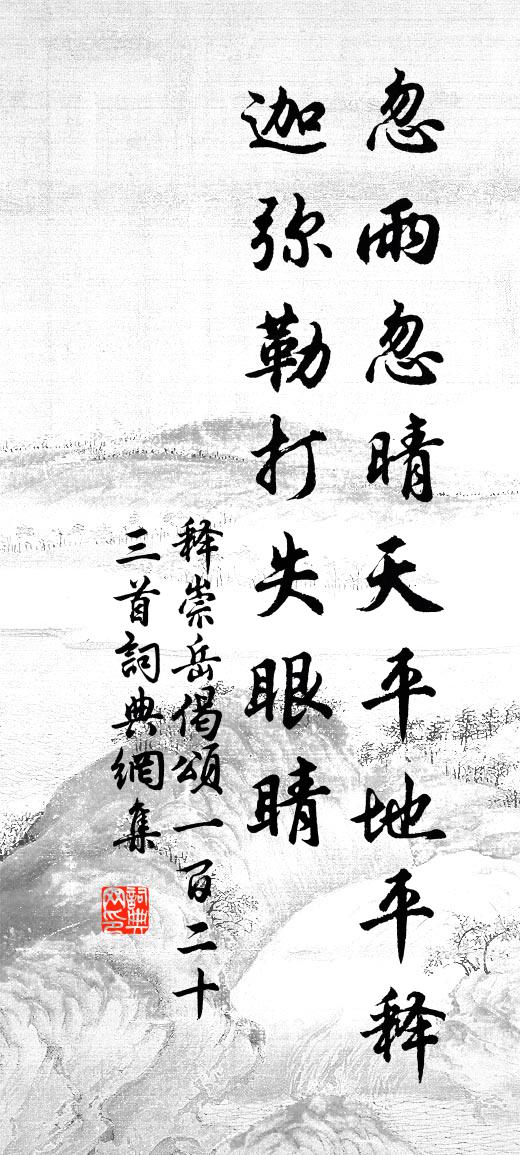 忽雨忽晴天平地平释
迦弥勒打失眼睛
释崇岳偈颂一百二十
三首詞典網集
詞典網印